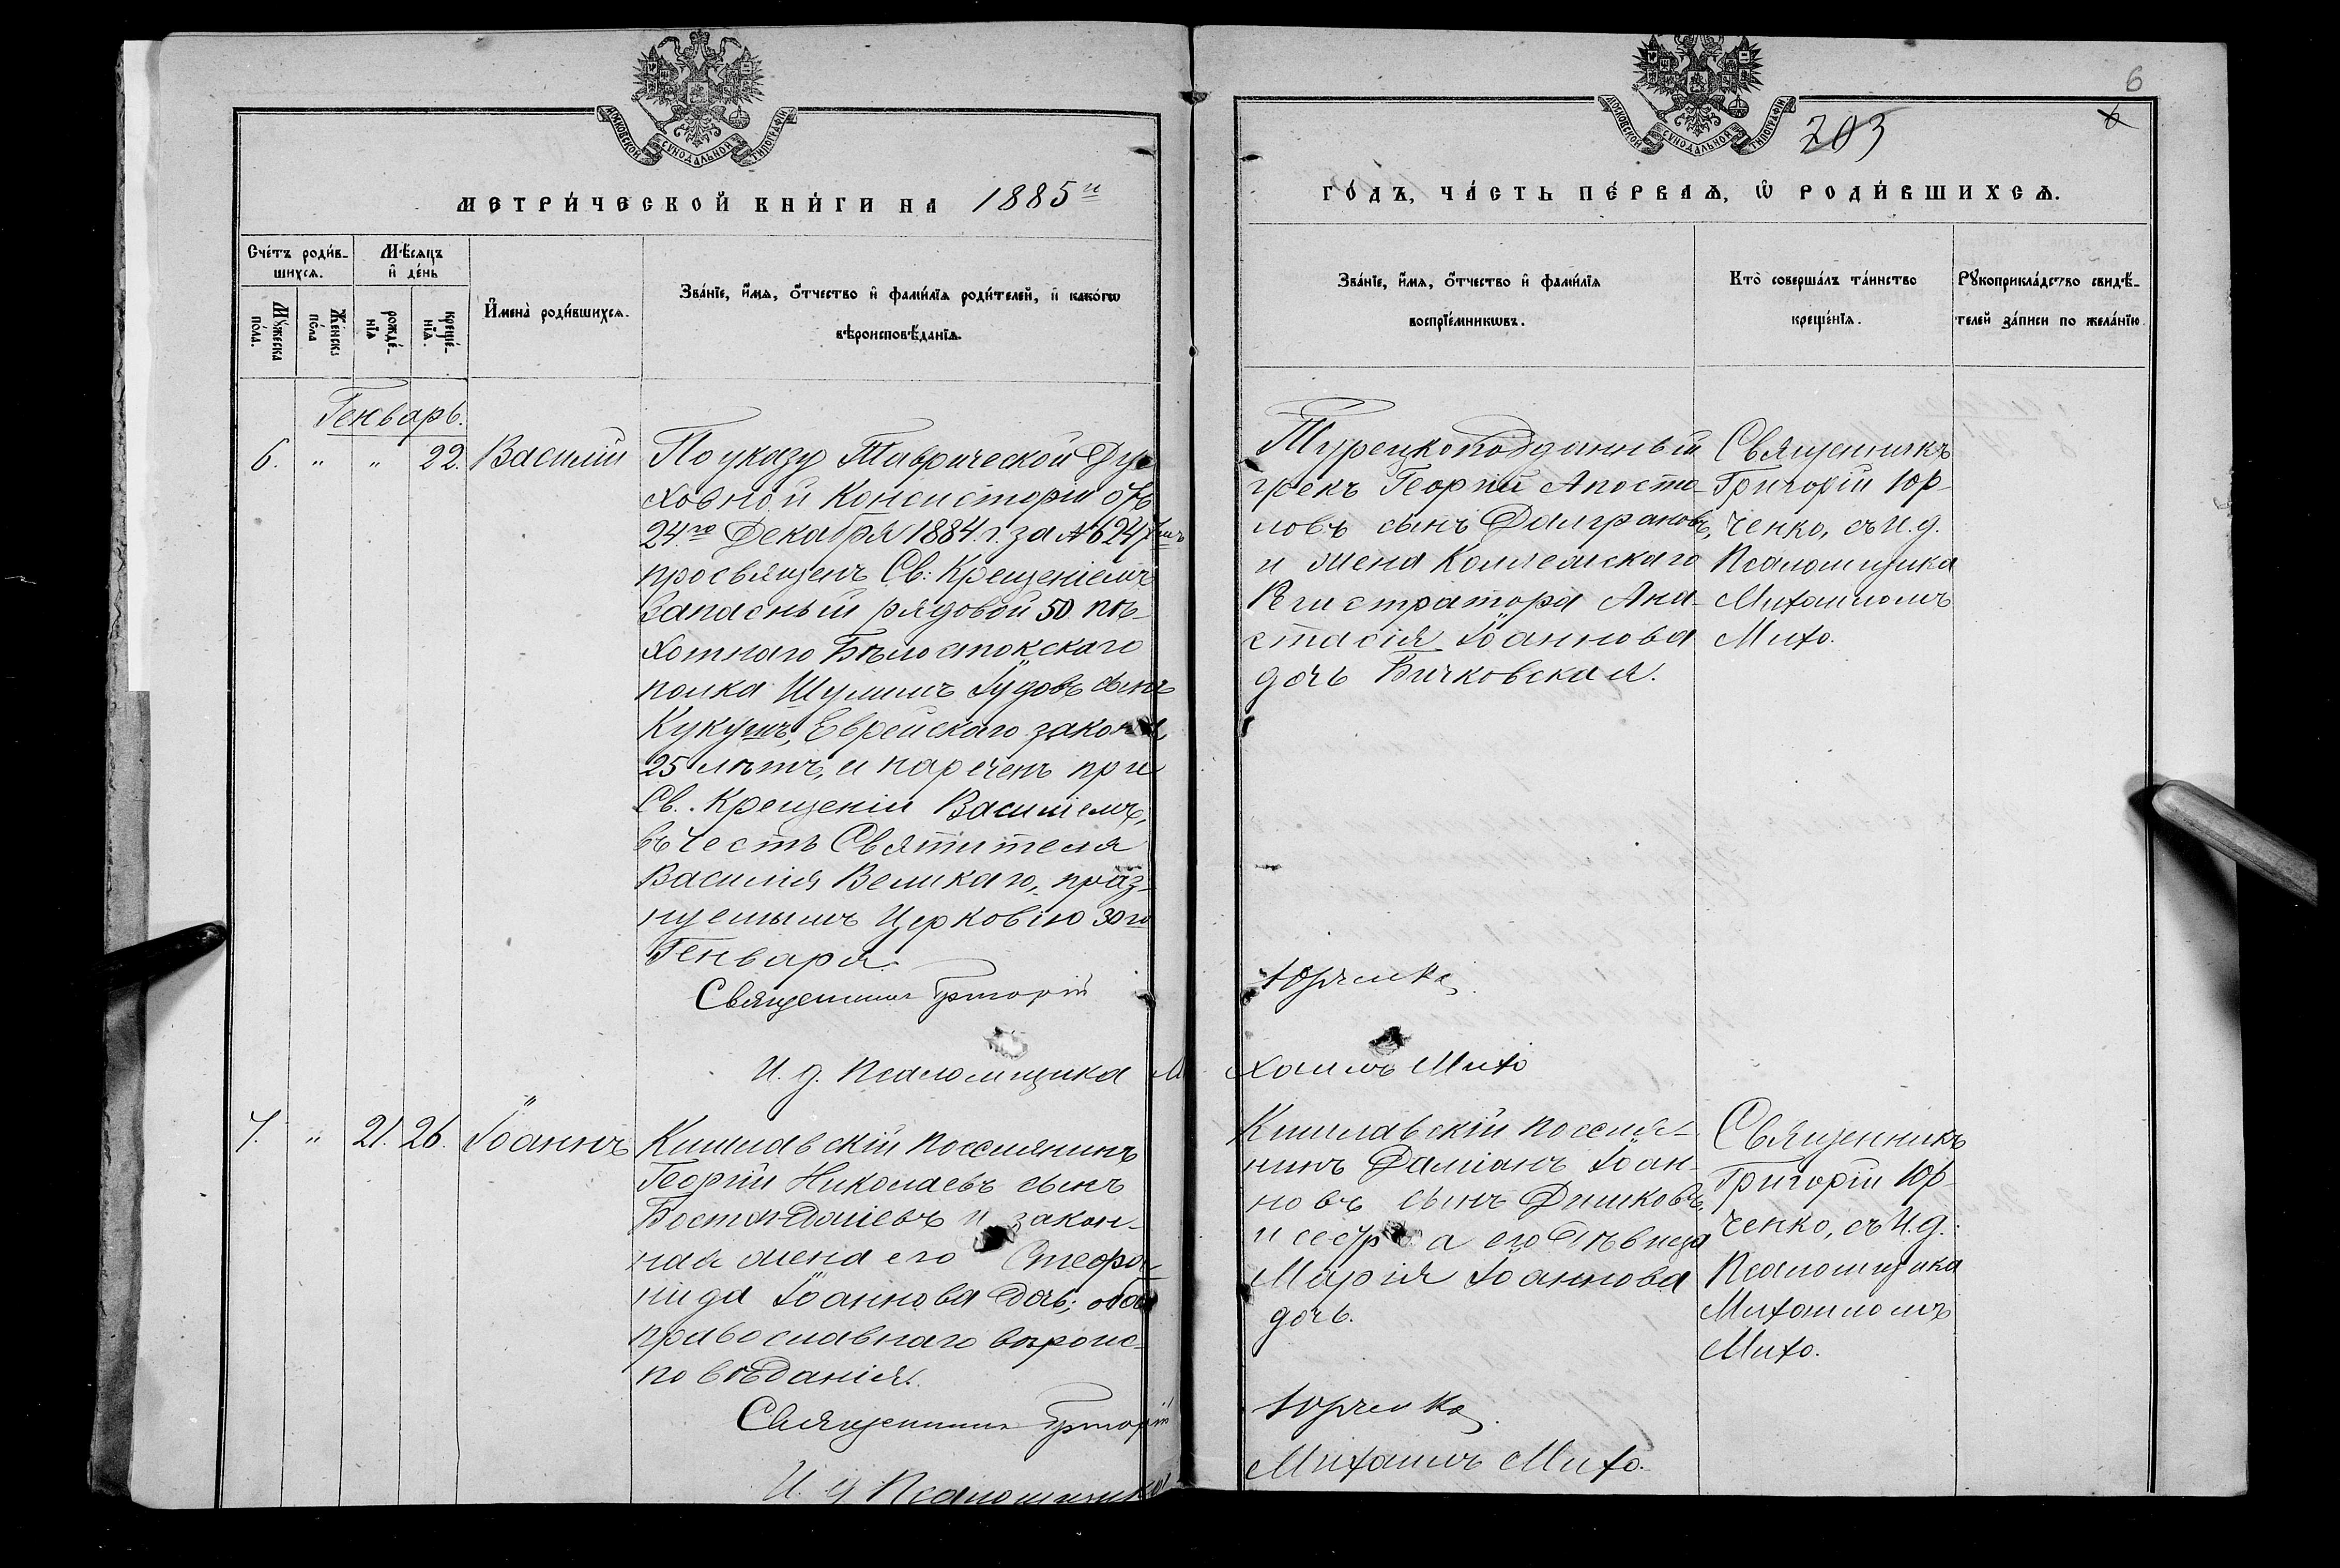 МОСКОВСКОЙ СѴНОДАЛЬНОЙ ТИПОГРАФІИ
МЕТРИ́ЧЕСКОЙ КНИ́ГИ НА 1885 й
Сче́тъ роди́в-
шихсѧ.
Мѣ́сяцъ
и҆ де́нь
Му́жеска
по́ла.
Же́нска
по́ла
рожде́-
нїѧ
креще́-
нїѧ.
И҆мена̀ роди́вшихсѧ.
Зва́нїе, и҆́мѧ, ѻ҆́тчество и҆ фами́лїѧ роди́телей, и҆ како́гѡ
вѣроисповѣ́данїѧ.
Генварь.
6. " " 22. Василій
По указу Таврической Ду-
ховной Консисторіи отъ
24го Декабря 1884 г. за № 6247мъ
просвященъ Св: Крещеніемъ
запасный рядовой 50 пѣ-
хотнаго Бѣлостокскаго
полка Шулимъ Іудовъ сынъ
Кукушъ, Еврейскаго закона,
25 лѣтъ, и нареченъ при
Св. Крещеніи Василіемъ,
въ честь Святителя
Василія Великаго, праз-
нуемымъ Церковію 30го
Генваря.
Священникъ Григорій
И. д. Псаломщика Ми
7. " 21. 26. Іоаннъ
Кишлавскій поселянинъ
Георгій Николаевъ сынъ
Бостанджіевъ и закон-
ная жена его Стефа-
нида Іоаннова дочь; оба
православнаго вѣроис-
повѣданія.
Священникъ Григорій
И. д. Псаломщика
6
6
203
МОСКОВСКОЙ СѴНОДАЛЬНОЙ ТИПОГРАФІИ
ГО́ДЪ, ЧА́СТЬ ПЕ́РВАѦ, Ѡ҆ РОДИ́ВШИХСѦ.
Зва́нїе, и҆́мѧ, ѻ҆́тчество и҆ фами́лїѧ
воспрїе́мникѡвъ.
Кто̀ соверша́лъ та́инство
креще́нїѧ.
Рꙋкоприкла́дство свидѣ́-
телей за́писи по жела́нїю.
Турецкоподданный
грекъ Георгій Апосто-
ловъ сынъ Далграновъ,
и жена Коллежскаго
Регистратора Ана-
стасія Іоаннова
дочь Бичковская.
Священникъ
Григорій Юр-
ченко, съ И. д.
Псаломщика
Михаиломъ
Михо.
Юрченко
хаилъ Михо
Кишлавскій поселя-
нинъ Даміанъ Іоан-
новъ сынъ Димковъ,
и сестра его дѣвица
Марія Іоаннова
дочь.
Священникъ
Григорій Юр-
ченко, съ И. д.
Псаломщика
Михаиломъ
Михо.
Юрченко
Михаилъ Михо.